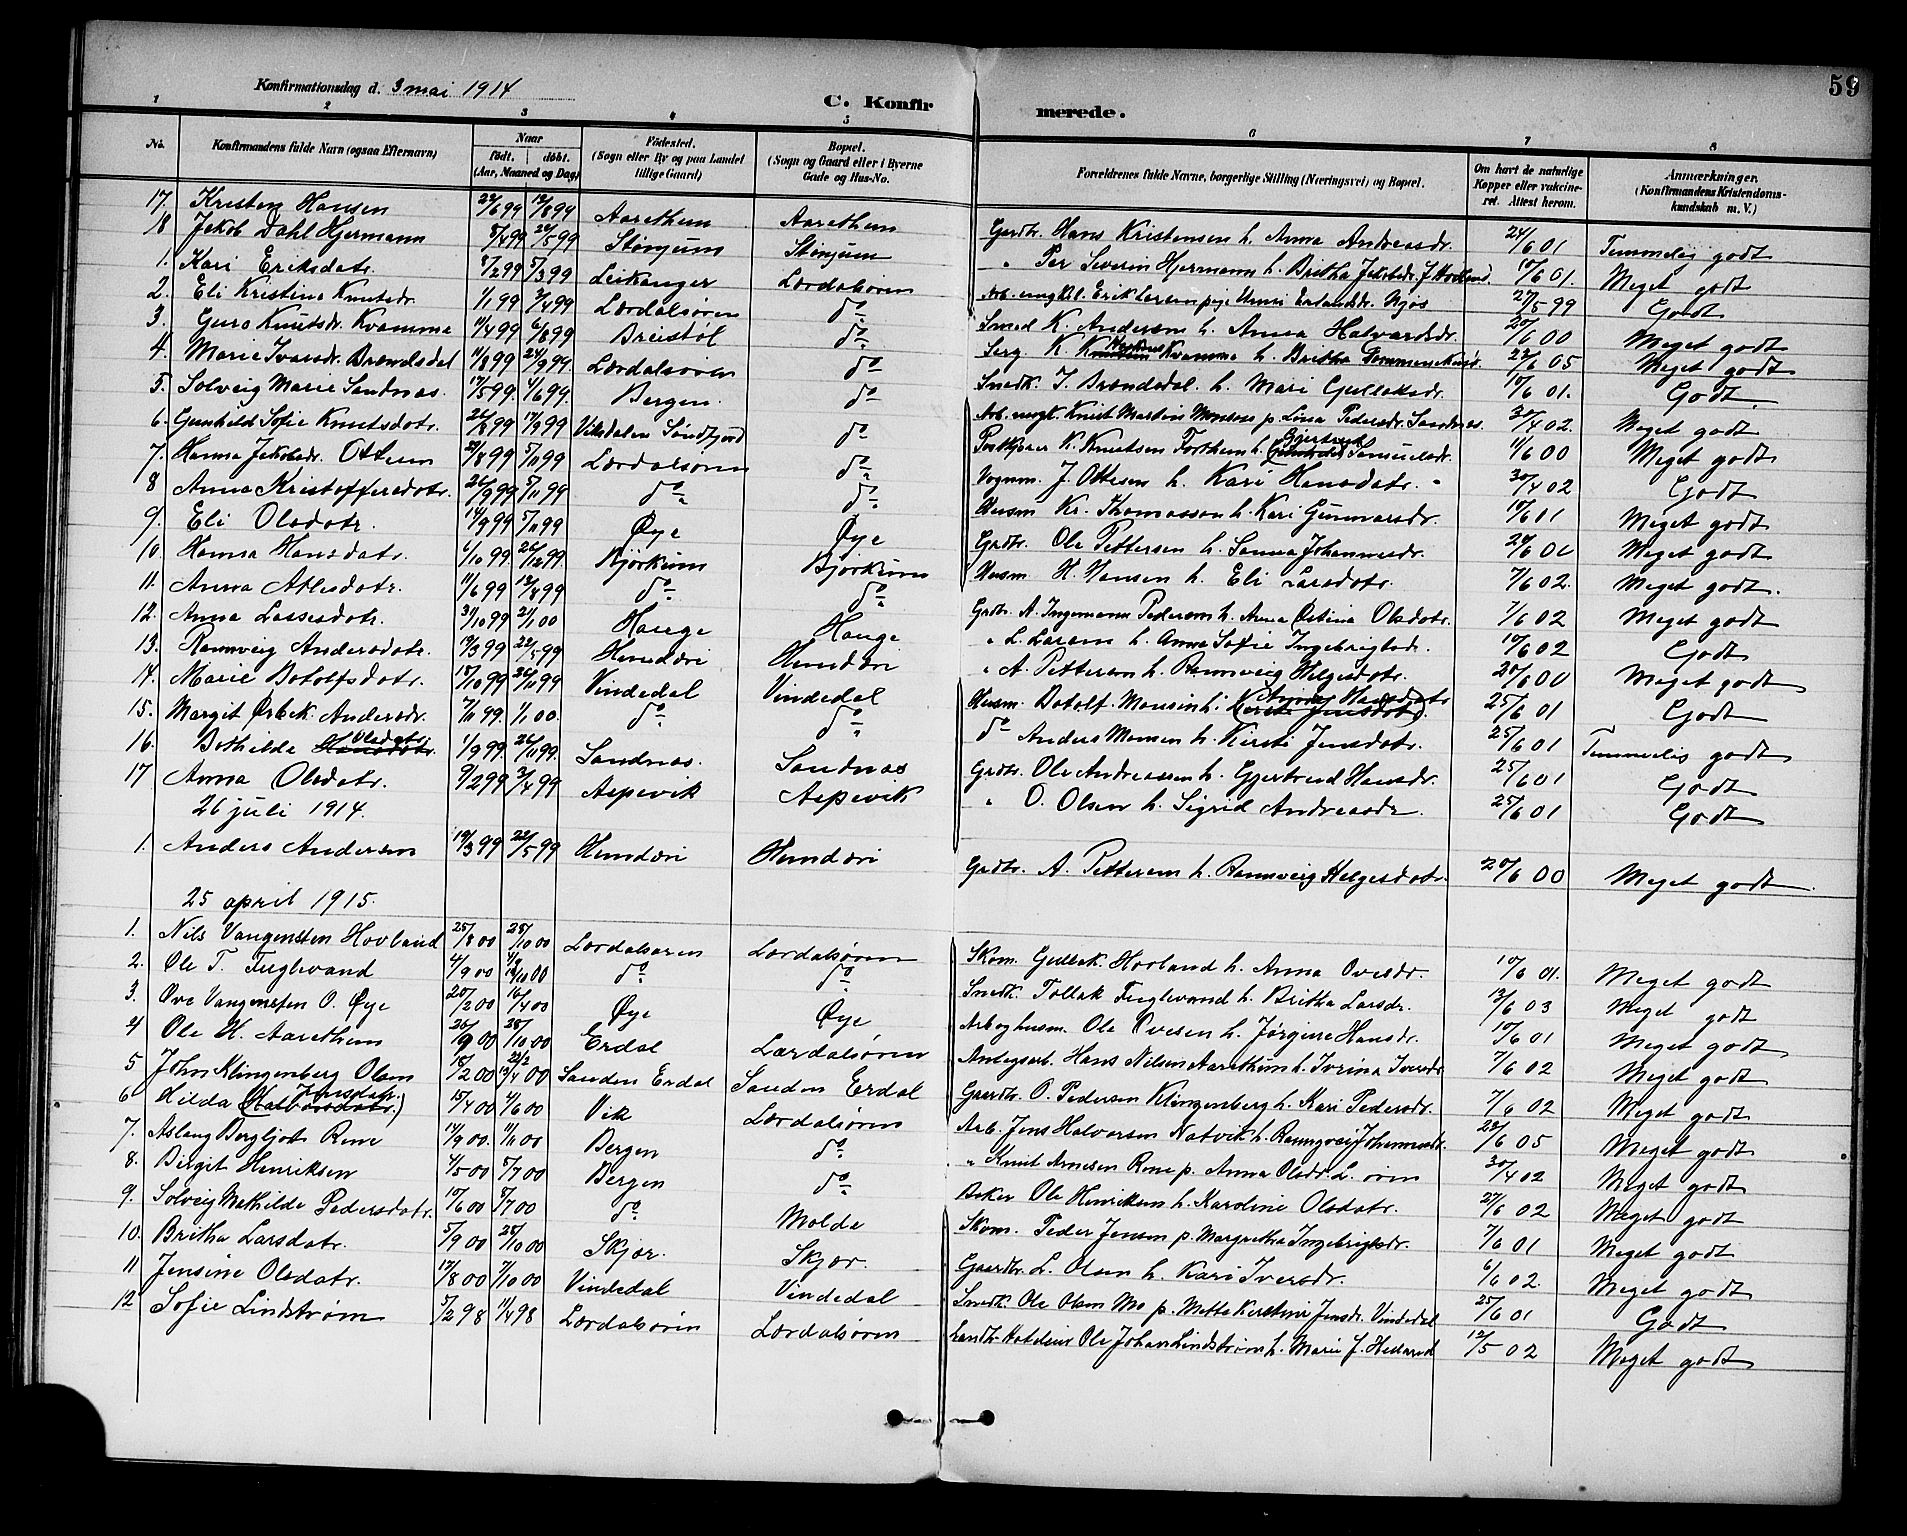 59
Konfirmationsdag d. 3 mai 1914
C. Konfirmerede.
1 2 3 4 5 6 7 8
No. | Konfirmandens fulde Navn (ogsaa Efternavn) | Naar født. | døbt. (Aar, Maaned og Dag) | Fødested. (Sogn eller By og paa Landet tillige Gaard) | Bopæl. (Sogn og Gaard eller i Byerne Gade og Hus-No. | Forældrenes fulde Navne, borgerlige Stilling (Næringsvei) og Bopæl. | Om havt de naturlige Kopper eller vakcineret. Attest herom. | Anmærkninger. (Konfirmandens Kristendomskundskab m. V.)
17. Kristen Hansen 99 99 Aarethun Aarethun Gardbr. Hans Kristensen h. Anna Andreasdr. 24/6 01 Temmelig godt
18 Jakob Dahl Hjermann 99 99 Stønjum Stønjum " Per Severin Hjermann h. Britha Jakobsdr. 10/6 01. Meget godt
1. Kari Eriksdatr. 5/2 99 5/3 99 Leikanger Lærdalsøren Arb. ungkl. Erik Larsen pige Unni Erlandsdr. Njøs 27/5 99 Godt
2. Eli Kristine Knutsdr. 1/1 99 3/4 99 Lærdalsøren do Smed K. Andersen h. Anna Halvardsdr. 20/6 00 Meget godt
3. Guro Knutsdr. Kvamme 11/4 99 6/8 99 Breistøl do Serg. K. Kvamme h. Britha 05 Meget godt
4. Marie Ivarsdr. Brændsdal 11/8 99 24/9 99 Lærdalsøren do Snedk. I. Brændsdal h. Mari Gulleiksdr. 10/6 01. Godt.
5. Solveig Marie Sandnæs. 17/5 99 4/6 99 Bergen. do Arb. ungk. Knut Martin Monsen p. Lina Pedersdr. Sandnæs. 30/4 02. Meget godt
6. Gunhild Sofie Knutsdotr. 99 99 Viksdalen Søndfjord do Postkjører K. Knutsen Forthun h. Gjertrud Samuelsdr. 11/6 00 Meget godt
7. Hanna Jakobsdr. Ottesen 99 5/11 99 Lærdalsøren do Vognm. J. Ottesen h. Kari Hansdatr. " 30/4 02 Godt
8 Anna Kristoffersdotr. 26/9 99 5/11 99 do do Husm Kr. Thomassen h. Kari Gunnarsdr. 10/6 01 Meget godt
9. Eli Olsdotr. 14/9 99 5/11 99 Øye Øye Grdbr. Ole Pettersen h. Sanna Johannesdr. Meget godt
10. Hanna Hansdatr. 6/10 99 26/12 99 Bjørkum Bjørkum Husm. H. Hansen h. Eli Larsdotr. 7/6 02. Meget godt.
11. Anna Atlesdotr. 11/6 99 99 do do Grdbr. A. Ingemann Pedersen h. Anna Østina Olsdotr. 7/6 02 Meget godt
12. Anna Lassesdotr. 31/10 99 21/1 00 Hauge Hauge " L. Larsen h. Anna Sofie Ingebrigtsdr. 10/6 02 Godt
13. Rannveig Andersdotr. 19/3 99 22/5 99 Hundæri Hundæri " A. Pettersen h. Rannveig Helgesdotr. 20/6 00 Meget godt
14. Marie Botolfsdotr. 15/10 99 26/11 99 Vindedal Vindedal Husm. Botolf Monsen h. (Kirsti Jensdotr) Hansdotr 25/6 01 Godt
15. Margit Ørbek Andersdr. 7/11 99. 1/1 00. do do do Anders Monsen h. Kirsti Jensdotr. 25/6 01 Temmelig godt
16. Bothilda Hansdotr. Olsdotr. 1/9 99. 26/11 99. Sandnæs. Sandnæs Grdbr. Ole Andreassen h. Gjertrud Hansdr. 25/6 01 Godt
17 Anna Olsdatr. 9/2 99 3/4 99 Aspevik Aspevik " O. Olsen h. Sigrid Andreasdr. 25/6 01 Godt
26 juli 1914.
1. Anders Andersen 19/3 99 22/5 99 Hundæri Hundæri Grdbr. A. Pettersen h. Rannveig Helgesdotr. 20/6 00 Meget godt
25 april 1915.
1. Nils Vangensten Hovland 25/8 00 28/10 00 Lærdalsøren Lærdalsøren Skom. Gulleik Hovland h. Anna Ovesdr. 10/6 01. Meget godt
2. Ole T. Fuglevand 4/9 00 10 00 do do Snedk. Tollak Fuglevand h. Britha Larsdr. 12/6 03 Meget godt
3. Ove Vangensten O. Øye 20/2 00 16/4 00 Øye Øye Arb og husm. Ole Ovesen h. Jørgine Hansdr. 10/6 01 Meget godt
4 Ole H. Aarethun 26/9 00 28/10 00 Erdal Lærdalsøren Anlegsarb. Hans Nilsen Aarethun h. Ivrina Iversdr 7/6 02 Meget godt
5 John Klingenberg Olsen 15/2 00 4 00 Sanden Erdal Sanden Erdal Gaardbr. O. Pedersen Klingenberg h. Kari Pedersdr. 7/6 02 Meget godt
6 Hilda (Halvorsdotr.) Jensdatr. 15/4 00 4/6 00 Vik Lærdalsøren Arb. Jens Halvorsen Natvik h. Ranngvei Johannesdr. 28/6 05 Meget godt
7. Aslaug Bergljot Rene 14/9 00. 11/11 00 Bergen do " Knut Arnesen Rene p. Anna Olsdr. L. øren 30/4 02 Meget godt
8. Birgit Henriksen 4/5 00 8/7 00 Bergen do Baker Ole Henriksen h. Karoline Olsdotr. 27/6 02 Meget godt
9. Solveig Mathilde Pedersdotr. 10/6 00 8/7 00 do Molde Skom. Peder Jensen p. Margretha Ingebrigtsdr. 7/6 01 Meget godt
10. Britha Larsdotr. 5/9 00 28/10 00 Skjær. Skjær. Gaardbr. L. Olsen h. Kari Iversdr. 6/6 02. Meget godt
11 Jensine Olsdatr. 17/8 00 7/10 00 Vindedal Vindedal Snedk. Ole Olsen Mo p. Metta Kirstine Jensdr. Vindedal 25/6 01 Godt
12 Sofie Lindstrøm 5/2 98 11/4 98 Lærdalsøren Lærdalsøren Landh. Hoteleier Ole Johan Lindstrøm h. Marie J. 12/5 02 Meget godt